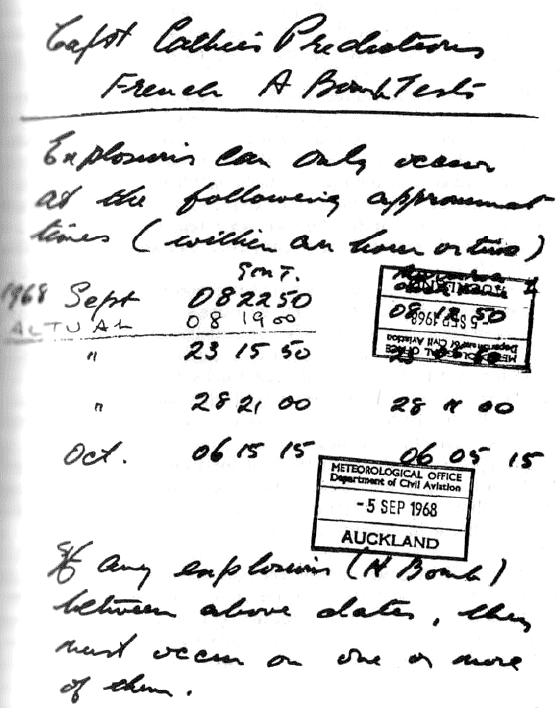 Capt Cathie's Predictions
French A Bomb Tests
Explosions can only occur
at the following approximat
times (within an hour or two)
GMT.
1968 Sept 082250 08 12 50
ACTUAL 08 1900
" 23 15 50
" 28 21 00 28 11 00
Oct. 06 15 15 06 05 15
AUCKLAND
-5 SEP 1968
METEOROLOGICAL OFFICE
Department of Civil Aviation
METEOROLOGICAL OFFICE
Department of Civil Aviation
-5 SEP 1968
AUCKLAND
If any explosions (H Bomb)
between above dates, they
must occur on one or more
of them.